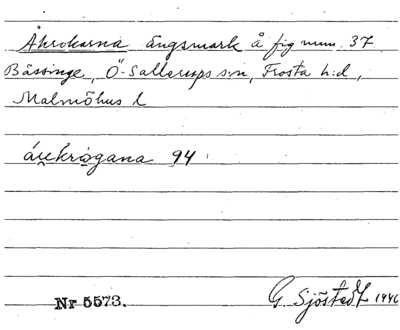 Åkrokarna ängsmark å fig num. 37
Bässinge, Ö-Sallerups sn, Frosta h:d,
Malmöhus l
áu̯krǫgana 94
Nr 5573. G. Sjöstedt 1946